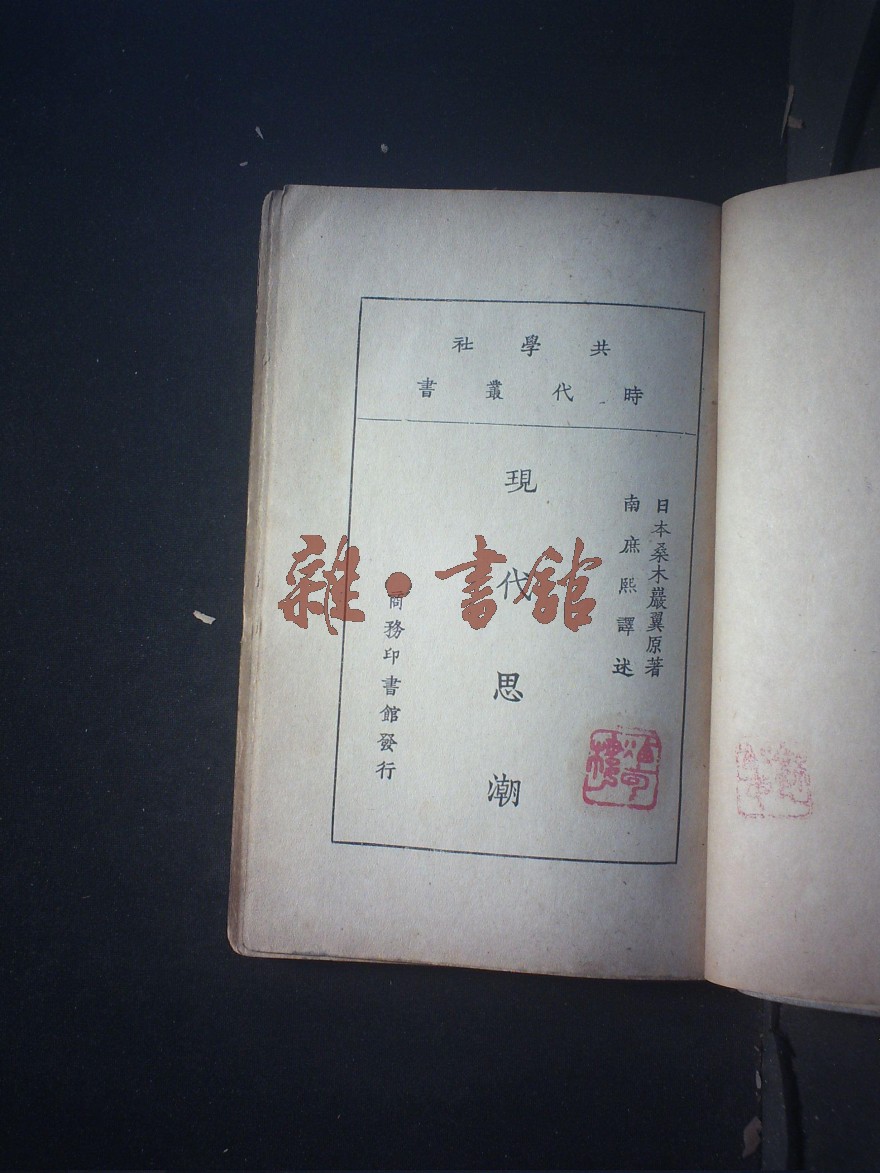 共學社
時代叢書
日本桑木嚴翼原著
南庶熙譯述
現代思潮
商務印書館發行
雜·書館